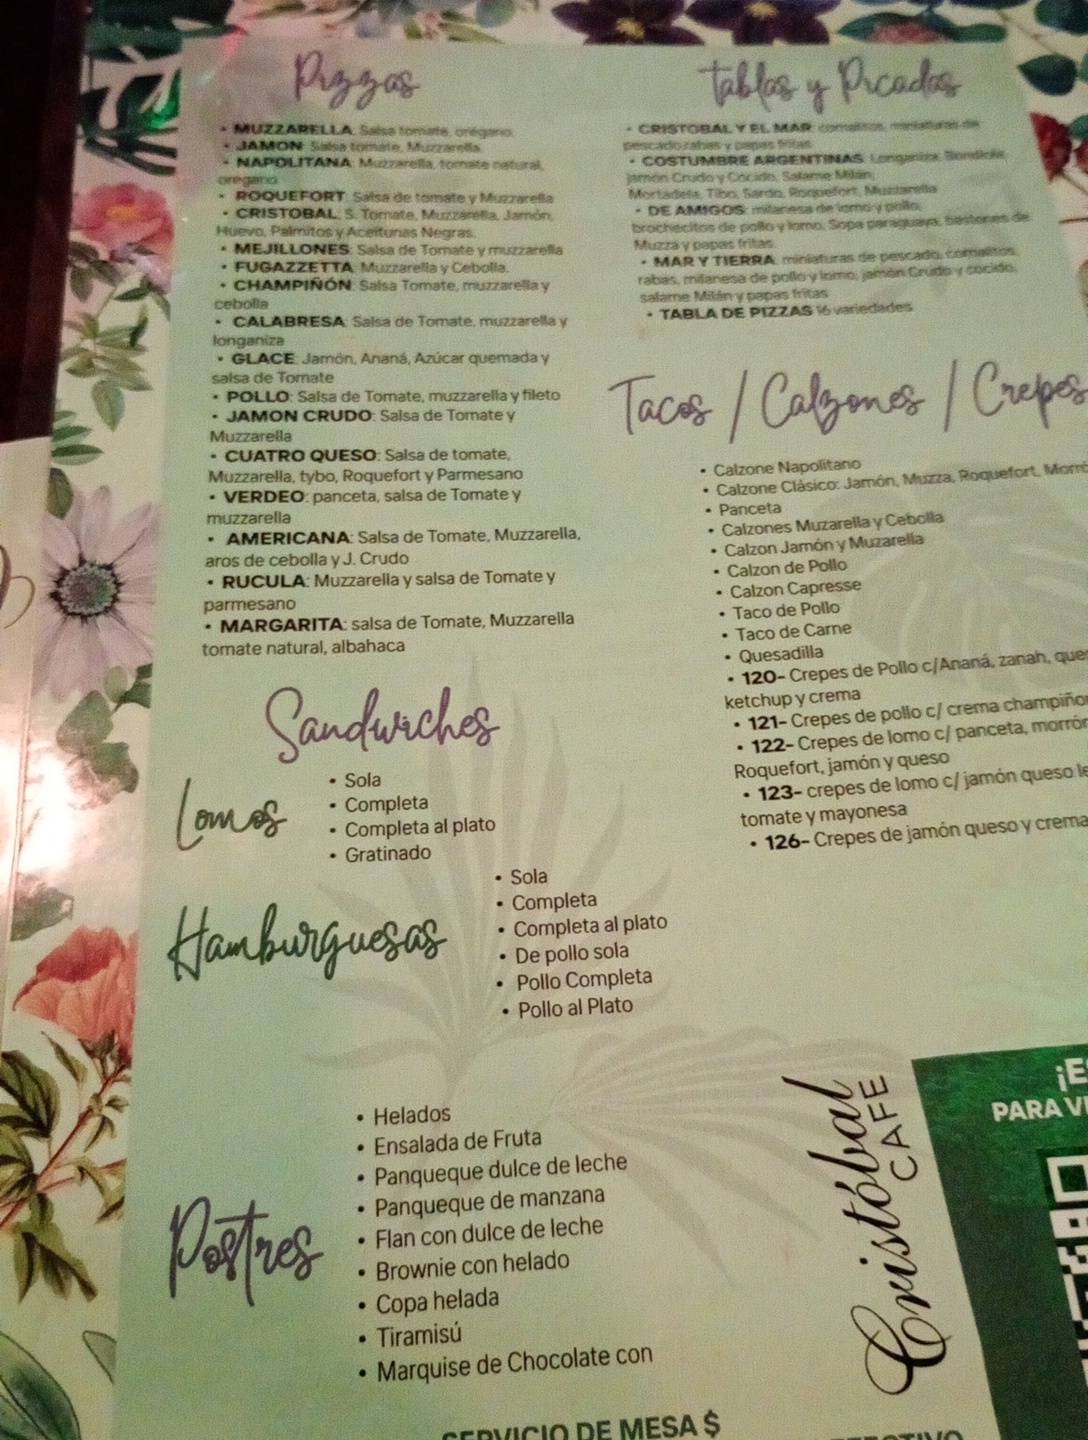 Pizzas
• MUZZARELLA: Salsa tomate, orégano.
• JAMON: Salsa tomate, Muzzarella.
• NAPOLITANA: Muzzarella, tomate natural,
oregano
• ROQUEFORT: Salsa de tomate y Muzzarella
• CRISTOBAL: S. Tomate, Muzzarella, Jamón,
Huevo, Palmitos y Aceitunas Negras.
• MEJILLONES: Salsa de Tomate y muzzarella
• FUGAZZETTA: Muzzarella y Cebolla.
• CHAMPIÑÓN: Salsa Tomate, muzzarella y
cebolla
• CALABRESA: Salsa de Tomate, muzzarella y
longaniza
• GLACE: Jamón, Ananá, Azúcar quemada y
salsa de Tomate
• POLLO: Salsa de Tomate, muzzarella y fileto
• JAMON CRUDO: Salsa de Tomate y
Muzzarella
• CUATRO QUESO: Salsa de tomate,
Muzzarella, tybo, Roquefort y Parmesano
• VERDEO: panceta, salsa de Tomate y
muzzarella
• AMERICANA: Salsa de Tomate, Muzzarella,
aros de cebolla y J. Crudo
• RUCULA: Muzzarella y salsa de Tomate y
parmesano
• MARGARITA: salsa de Tomate, Muzzarella
tomate natural, albahaca
Sandwiches
Lomos
• Sola
• Completa
• Completa al plato
• Gratinado
Hamburguesas
• Sola
• Completa
• Completa al plato
• De pollo sola
• Pollo Completa
• Pollo al Plato
Postres
• Helados
• Ensalada de Fruta
• Panqueque dulce de leche
• Panqueque de manzana
• Flan con dulce de leche
• Brownie con helado
• Copa helada
• Tiramisú
• Marquise de Chocolate con
Tablas y Picadas
• CRISTOBAL Y EL MAR: cornalitos, miniaturas de
pescado, rabas y papas fritas.
• COSTUMBRE ARGENTINAS: Longaniza, Bondiola,
jamón Crudo y Cocido, Salame Milán,
Mortadela, Tibo, Sardo, Roquefort, Muzzarella
• DE AMIGOS: milanesa de lomo y pollo,
brochecitos de pollo y lomo, Sopa paraguaya, bastones de
Muzza y papas fritas.
• MAR Y TIERRA: miniaturas de pescado, cornalitos,
rabas, milanesa de pollo y lomo, jamón Crudo y cocido,
salame Milán y papas fritas
• TABLA DE PIZZAS 16 variedades
Tacos / Calzones / Crepes
• Calzone Napolitano
• Calzone Clásico: Jamón, Muzza, Roquefort, Morró
• Panceta
• Calzones Muzarella y Cebolla
• Calzon Jamón y Muzarella
• Calzon de Pollo
• Calzon Capresse
• Taco de Pollo
• Taco de Carne
• Quesadilla
• 120- Crepes de Pollo c/Ananá, zanah, que
ketchup y crema
• 121- Crepes de pollo c/ crema champiño
• 122- Crepes de lomo c/ panceta, morrón
Roquefort, jamón y queso
• 123- crepes de lomo c/ jamón queso le
tomate y mayonesa
• 126- Crepes de jamón queso y crema
Cristóbal
CAFE
¡ES
PARA V
SERVICIO DE MESA $
EFECTIVO